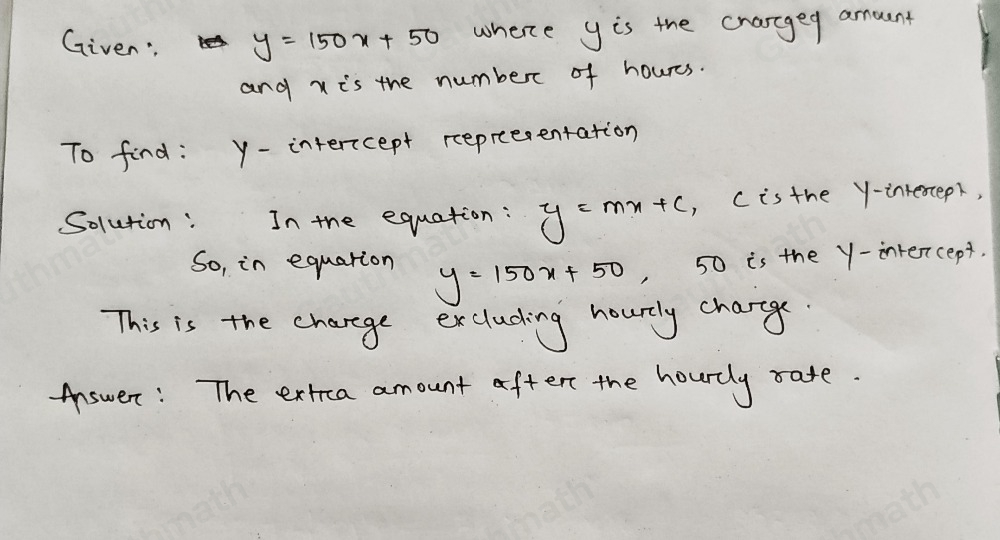 Given: y = 150x + 50 where y is the charged amount
and x is the number of hours.
To find: Y - intercept representation
Solution: In the equation: y = mx + c, c is the Y-intercept,
So, in equation y = 150x + 50, 50 is the Y-intercept.
This is the charge excluding hourly charge.
Answer: The extra amount after the hourly rate.